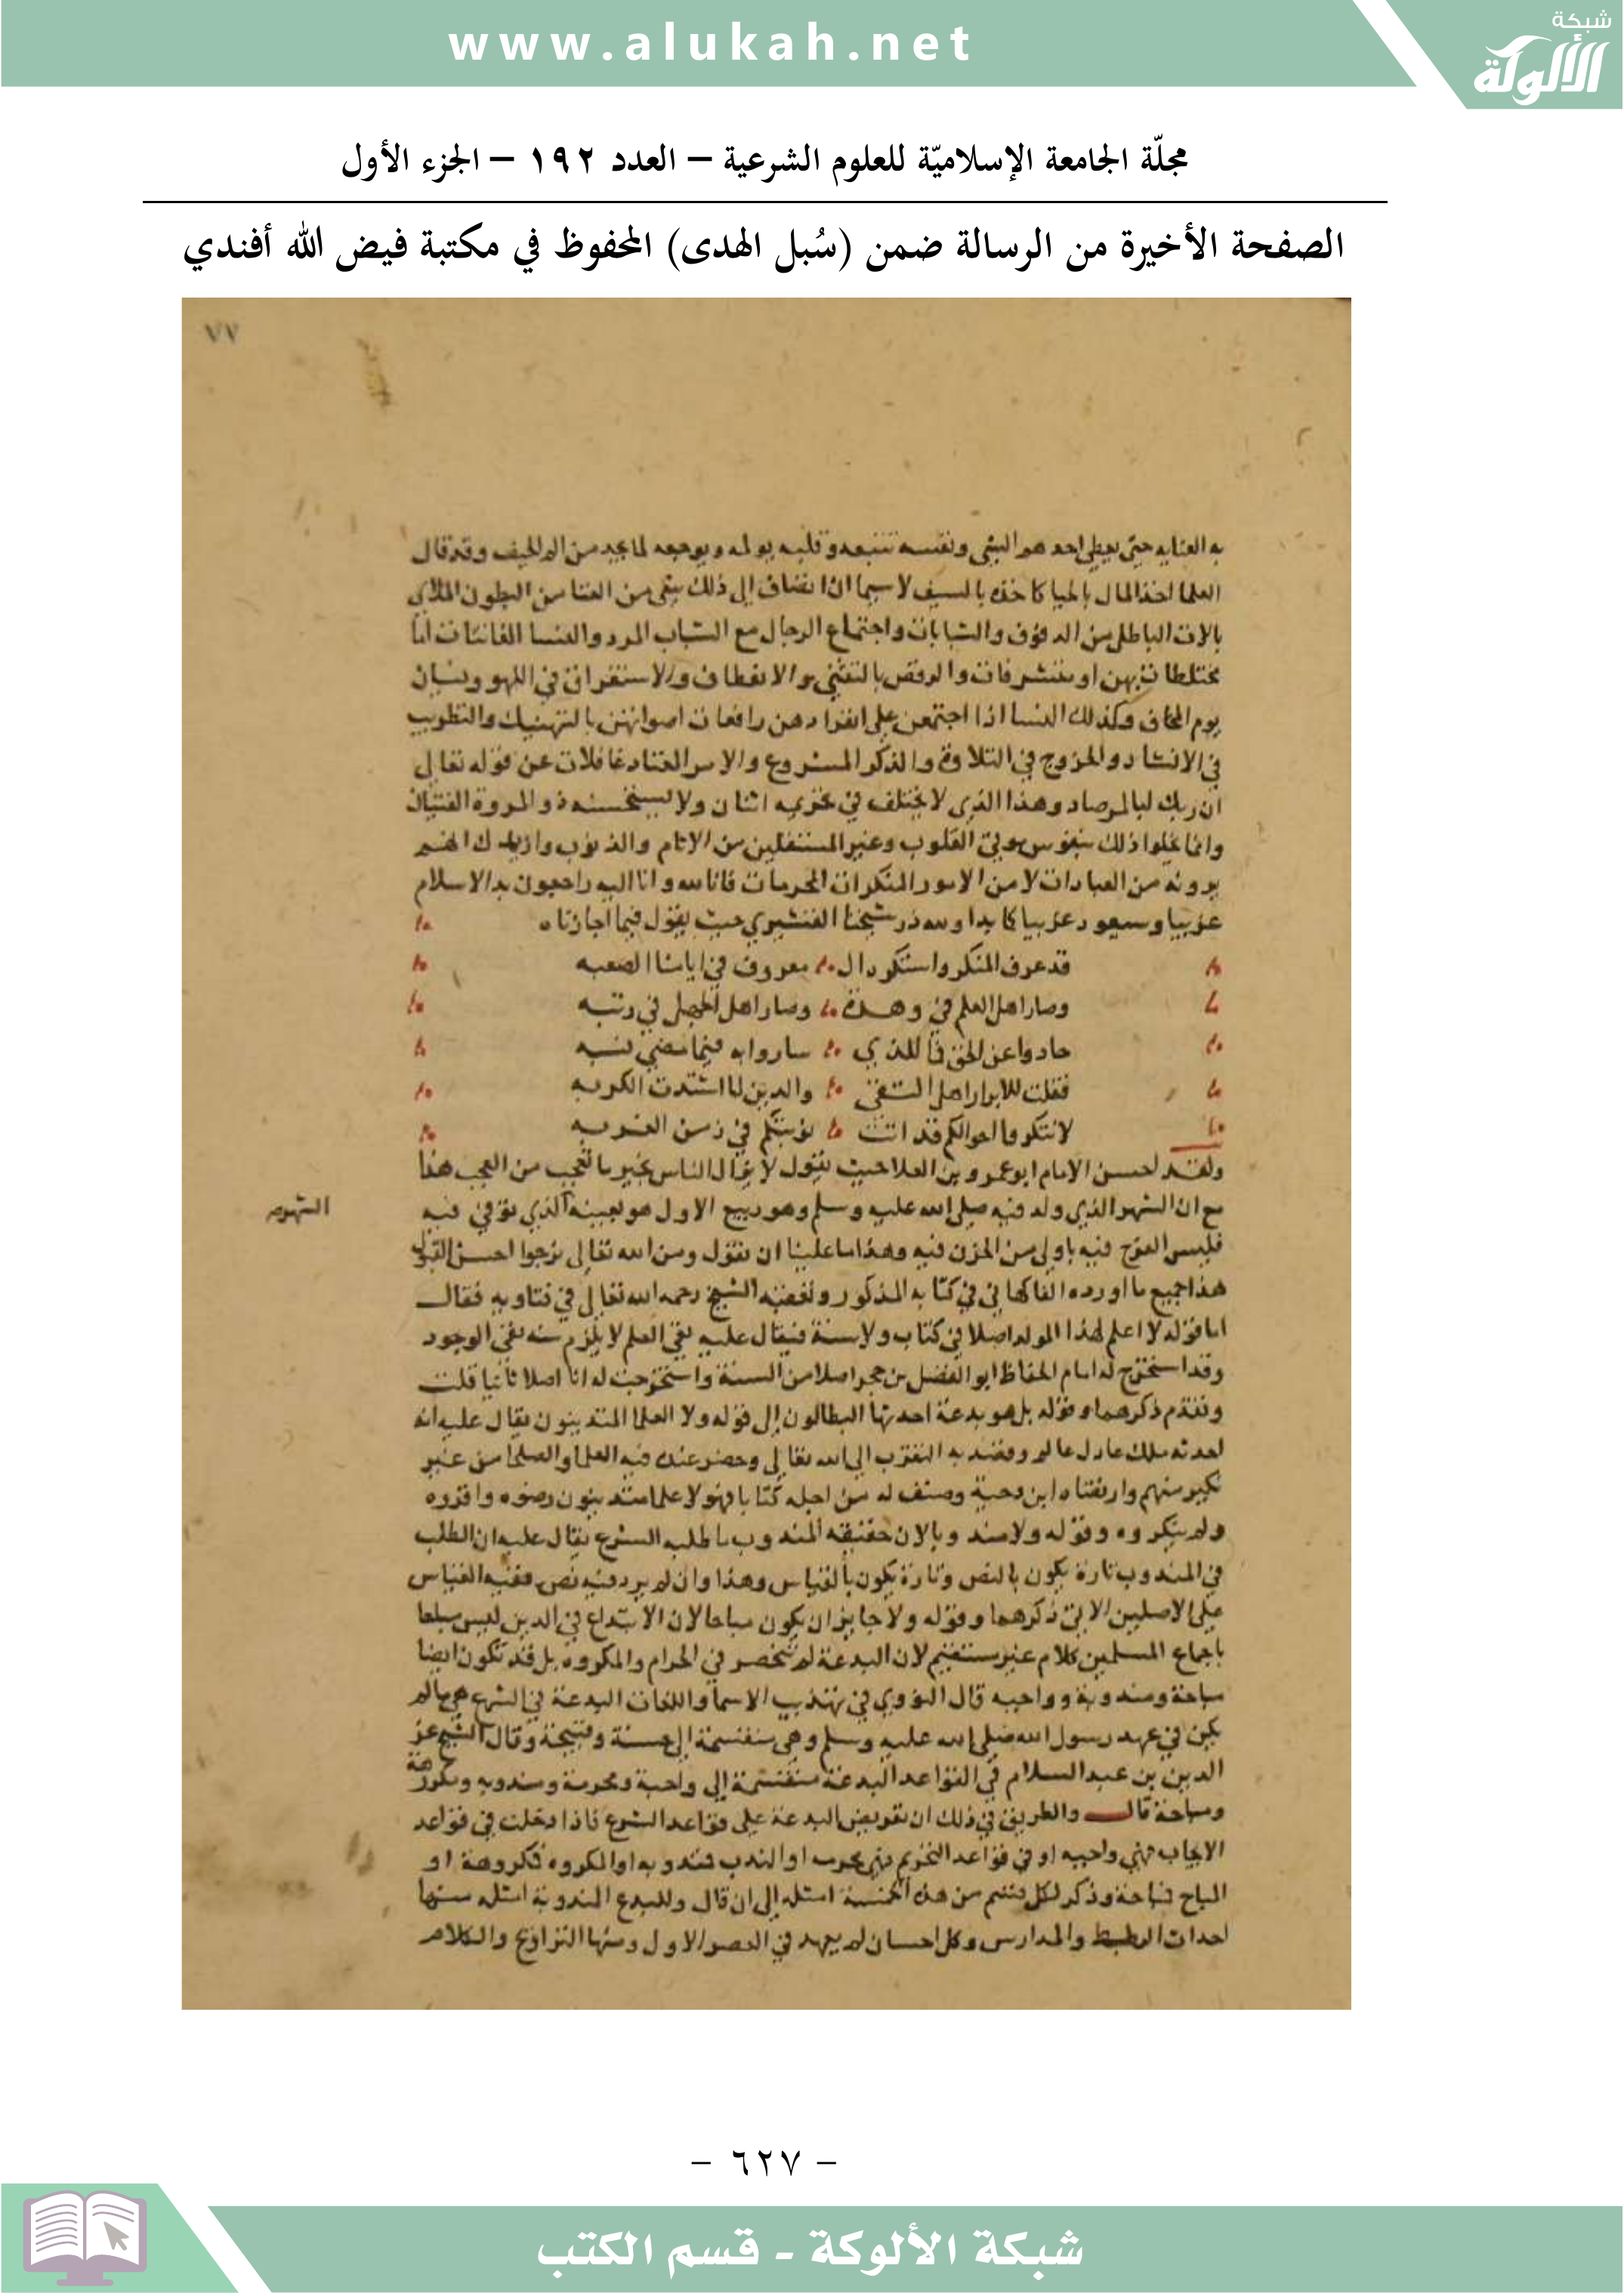 www.alukah.net
شبكة
الألوكة
مجلّة الجامعة الإسلاميّة للعلوم الشرعية – العدد ١٩٢ – الجزء الأول
الصفحة الأخيرة من الرسالة ضمن (سُبل الهدى) المحفوظ في مكتبة فيض الله أفندي
٧٧
به العنايه حتى يعطي احدهم الشي ونفسه تتبعه وقلبه يولمه ويوجعه لما يجد من الم الحيف وقد قال
العلما اخذ المال بالحيا كاخذه بالسيف لا سيما ان انضاف الى ذلك شي من الغنا من البطون الملاى
بالات الباطل من الدفوف والشبابات واجتماع الرجال مع الشباب المرد والنسا الفاتنات اما
مختلطات بهن او متشرفات والرقص بالتثني والانعطاف والاستغراق في اللهو ونسيان
يوم المخاف وكذلك النسا اذا اجتمعن على انفرادهن رافعات اصواتهن بالتهنيك والتطريب
في الانشاد والخروج في التلاوة والذكر المشروع والامر المعتاد غافلات عن قوله تعالى
ان ربك لبالمرصاد وهذا الذي لا يختلف في تحريمه اثنان ولا يستحسنه ذو المروة الفتيان
وانما يحلوا ذلك بنفوس موتى القلوب وغير المستقلين من الاثام والذنوب وازيدك انهم
يرونه من العبادات لا من الامور المنكرات المحرمات فانا لله وانا اليه راجعون بدا الاسلام
غريبا وسيعود غريبا كما بدا ولله در شيخنا القشيري حيث يقول فيما اجازناه
قد عرف المنكر واستنكر ال معروف في ايامنا الصعبه
وصار اهل العلم في وهدة وصار اهل الجهل في رتبه
حادوا عن الحق فما للذي ساروا به فيما مضى نسبه
فقلت للابرار اهل التقى والدين لما اشتدت الكربه
لا تنكروا احوالكم قد اتت نوبتكم في زمن الغربه
ولقد احسن الامام ابو عمرو بن العلا حيث يقول لا يزال الناس بخير ما تعجب من العجب هذا
مع ان الشهر الذي ولد فيه صلى الله عليه وسلم وهو ربيع الاول هو بعينه الذي توفي فيه
الشهر
فليس الفرح فيه باولى من الحزن فيه وهذا ما علينا ان نقول ومن الله تعالى نرجوا احسن القبول
هذا جميع ما اورده الفاكهاني في كتابه المذكور وتعقبه الشيخ رحمه الله تعالى في فتاويه فقال
اما قوله لا اعلم لهذا المولد اصلا في كتاب ولا سنة فيقال عليه نفي العلم لا يلزم منه نفي الوجود
وقد استخرج له امام الحفاظ ابو الفضل بن حجر اصلا من السنة واستخرجت له انا اصلا ثانيا قلت
وتقدم ذكرهما وقوله بل هو بدعة احدثها البطالون الى قوله ولا العلما المتدينون يقال عليه انه
احدثه ملك عادل عالم وقصد به التقرب الى الله تعالى وحضر عنده فيه العلما والصلحا من غير
نكير منهم وارتضاه ابن دحية وصنف له من اجله كتابا فهولا علما متدينون رضوه واقروه
ولم ينكروه وقوله ولا مندوبا لان حقيقة المندوب ما طلبه الشرع يقال عليه ان الطلب
في المندوب تارة يكون بالنص وتارة يكون بالقياس وهذا وان لم يرد فيه نص ففيه القياس
على الاصلين الاتي ذكرهما وقوله ولا جايز ان يكون مباحا لان الابتداع في الدين ليس مباحا
باجماع المسلمين كلام غير مستقيم لان البدعة لم تنحصر في الحرام والمكروه بل قد تكون ايضا
مباحة ومندوبة وواجبه قال النووي في تهذيب الاسما واللغات البدعة في الشرع هي ما لم
يكن في عهد رسول الله صلى الله عليه وسلم وهي منقسمة الى حسنة وقبيحة وقال الشيخ عز
الدين بن عبد السلام في القواعد البدعة منقسمة الى واجبة ومحرمة ومندوبه ومكروهة
ومباحة قال والطريق في ذلك ان تعرض البدعة على قواعد الشرع فاذا دخلت في قواعد
الايجاب فهي واجبه او في قواعد التحريم فهي محرمه او الندب فمندوبه او المكروه فمكروهة او
المباح فمباحة وذكر لكل قسم من هذه الخمسة امثله الى ان قال وللبدع المندوبة امثله منها
احداث الربط والمدارس وكل احسان لم يعهد في العصر الاول ومنها التراويح والكلام
– ٦٢٧ –
شبكة الألوكة - قسم الكتب